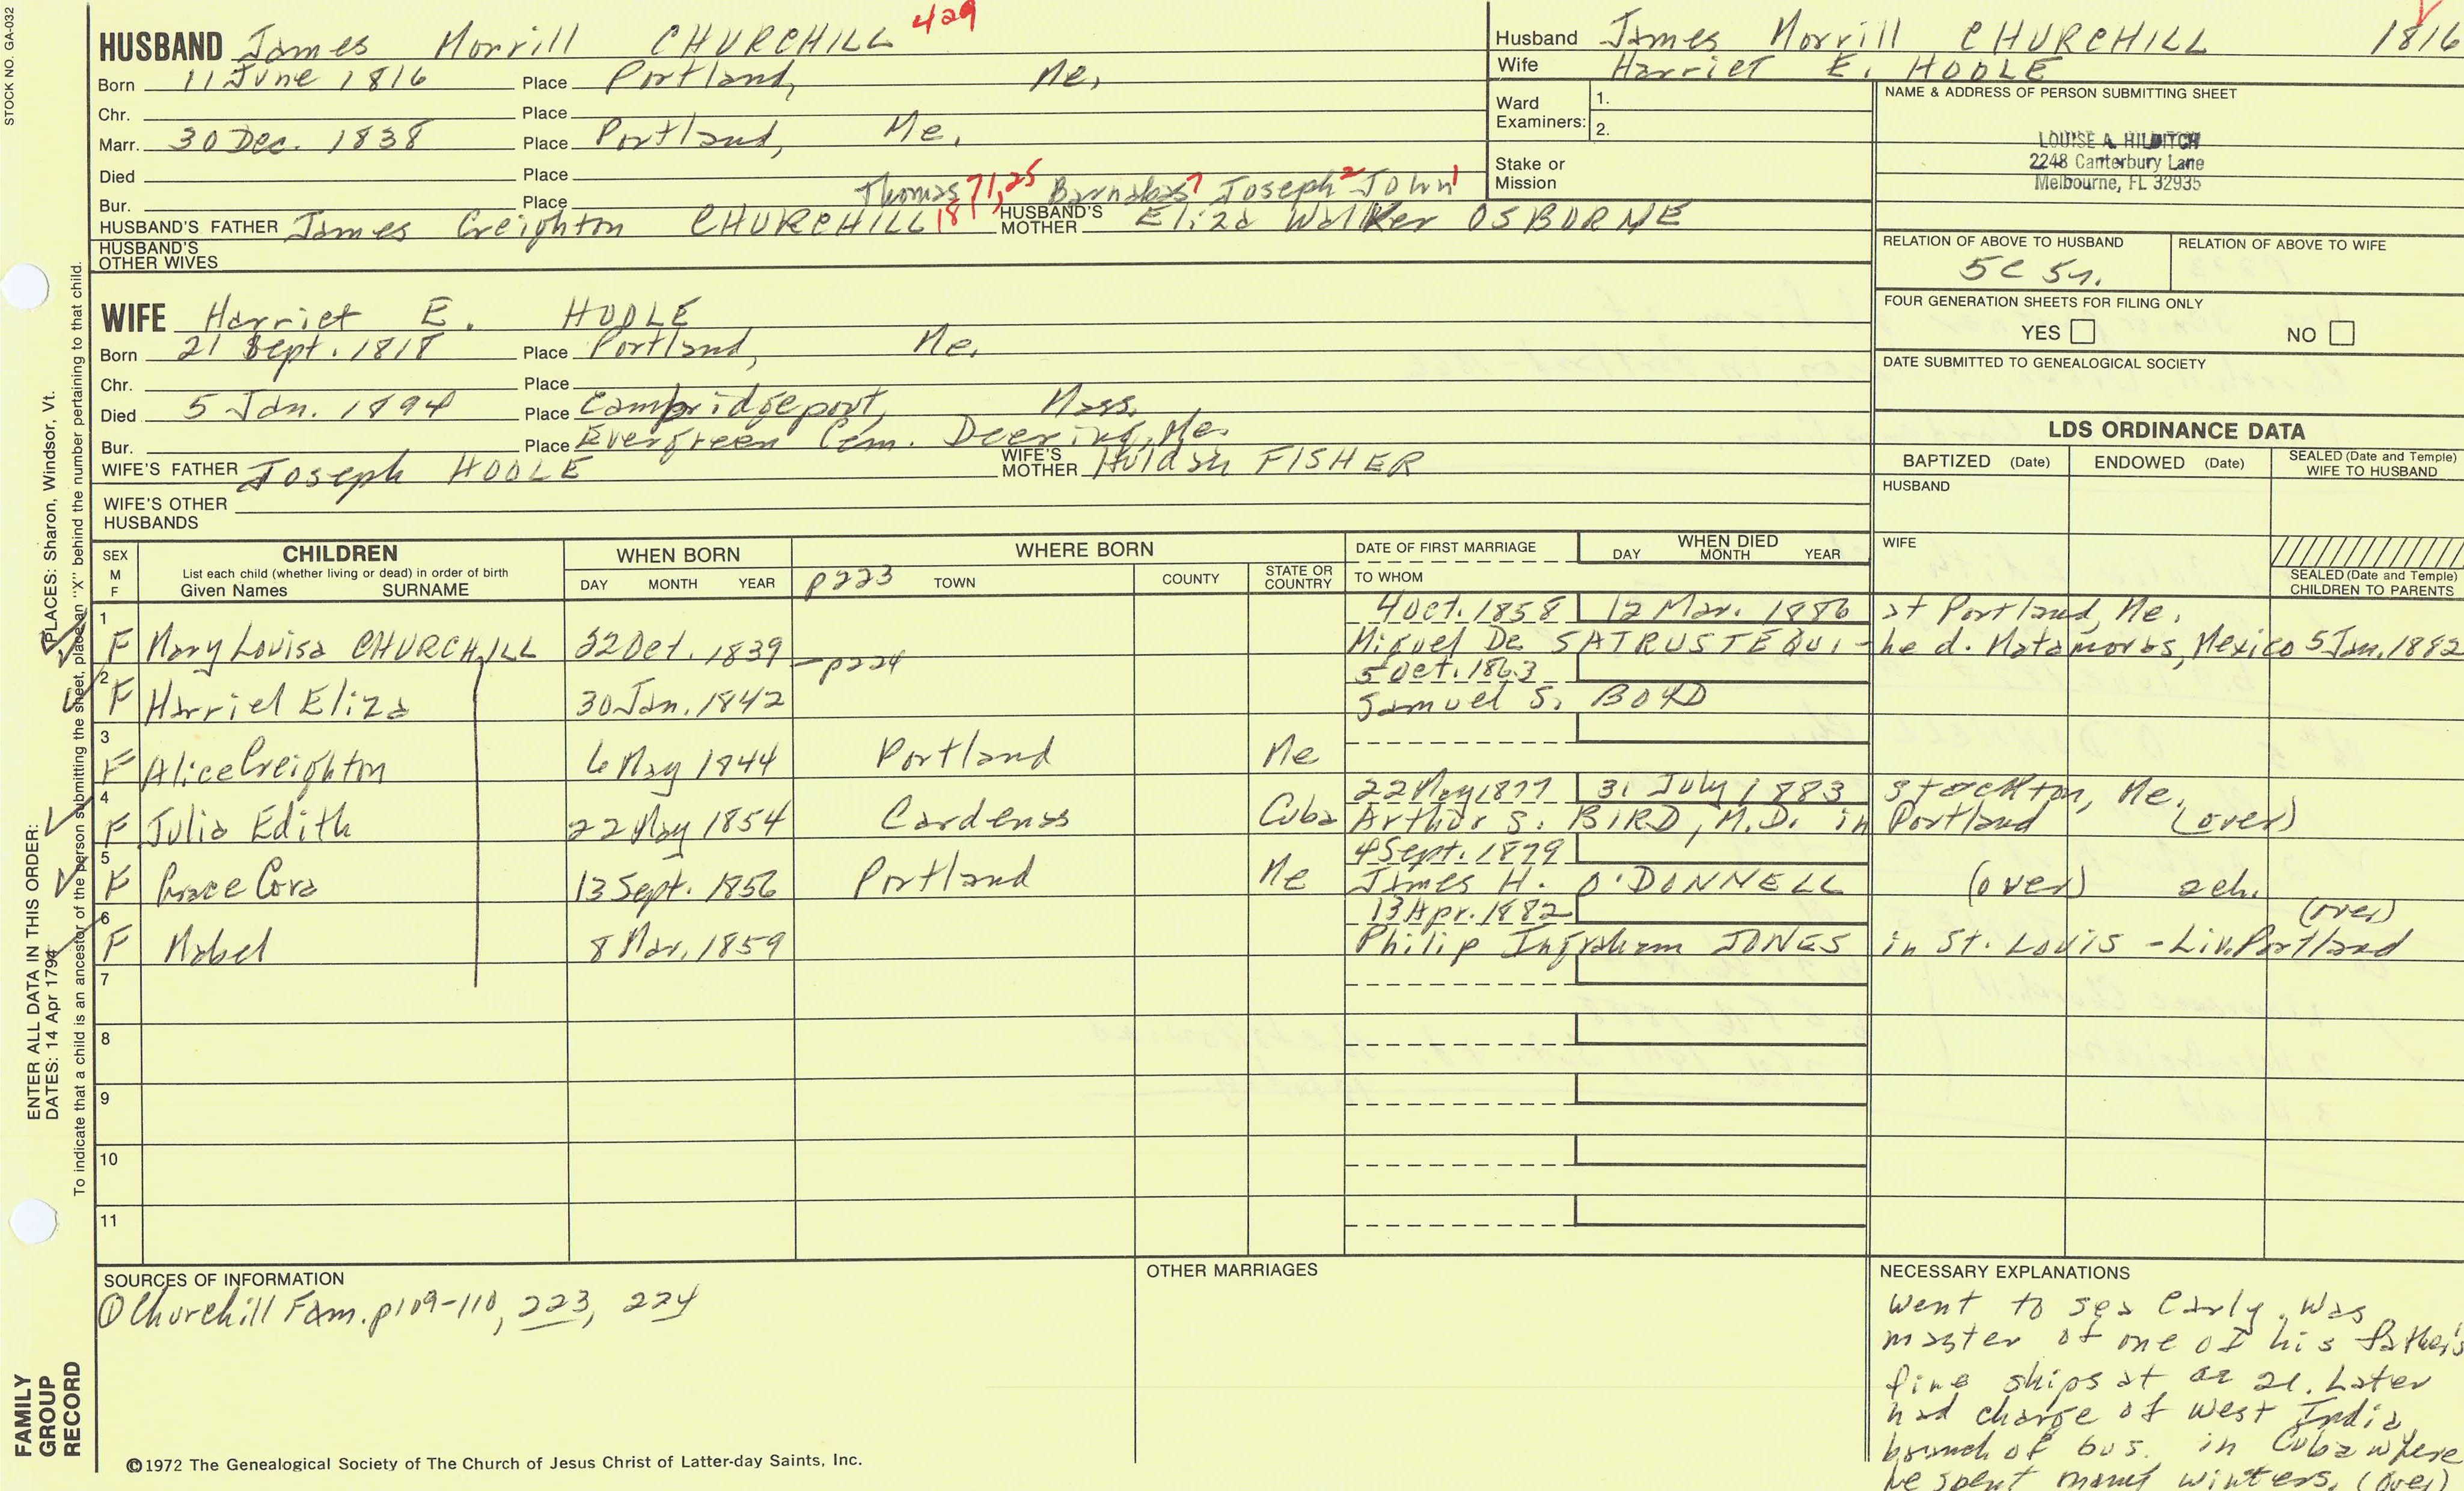 STOCK NO. GA-032
HUSBAND James Morrill CHURCHILL 429
Born 11 June 1816 Place Portland, Me,
Chr. Place
Marr. 30 Dec. 1838 Place Portland, Me,
Died Place
Thomas 71,25 Barnabas 7 Joseph 2 John 1
Bur. Place
HUSBAND'S FATHER James Creighton CHURCHILL 181 HUSBAND'S MOTHER Eliza Walker OSBORNE
HUSBAND'S OTHER WIVES
Husband James Morrill CHURCHILL 1816
Wife Harriet E. HOOLE
Ward Examiners: 1.
2.
Stake or Mission
NAME & ADDRESS OF PERSON SUBMITTING SHEET
LOUISE A. HILDITCH
2248 Canterbury Lane
Melbourne, FL 32935
RELATION OF ABOVE TO HUSBAND RELATION OF ABOVE TO WIFE
5C 5r.
FOUR GENERATION SHEETS FOR FILING ONLY
YES NO
DATE SUBMITTED TO GENEALOGICAL SOCIETY
WIFE Harriet E. HOOLE
Born 21 Sept. 1818 Place Portland, Me.
Chr. Place
Died 5 Jan. 1894 Place Cambridgeport, Mass.
Bur. Place Evergreen Cem. Deering, Me.
WIFE'S FATHER Joseph HOOLE WIFE'S MOTHER Huldah FISHER
WIFE'S OTHER HUSBANDS
LDS ORDINANCE DATA
BAPTIZED (Date) ENDOWED (Date) SEALED (Date and Temple) WIFE TO HUSBAND
HUSBAND
WIFE
SEALED (Date and Temple) CHILDREN TO PARENTS
SEX M F
CHILDREN
List each child (whether living or dead) in order of birth
Given Names SURNAME
WHEN BORN
DAY MONTH YEAR
WHERE BORN
p223 TOWN COUNTY STATE OR COUNTRY
DATE OF FIRST MARRIAGE
TO WHOM
WHEN DIED
DAY MONTH YEAR
1 4 Oct. 1858 12 Mar. 1886 at Portland, Me.
F Mary Louisa CHURCHILL 22 Oct. 1839 -p224 Miguel De SATRUSTEQUI - he d. Matamoros, Mexico 5 Jan. 1882
2 5 Oct. 1863
F Harriel Eliza 30 Jan. 1842 Samuel S. BOYD
3
F Alice Creighton 6 May 1844 Portland Me
4 22 May 1877 31 July 1883 Stockton, Me.
F Julia Edith 22 May 1854 Cardenas Cuba Arthur S. BIRD, M.D. in Portland (over)
5 4 Sept. 1879
F Grace Cora 13 Sept. 1856 Portland Me James H. O'DONNELL (over) 2 ch.
6 13 Apr. 1882 (over)
F Mabel 8 Mar. 1859 Philip Ingraham JONES in St. Louis - Liv. Portland
7
8
9
10
11
SOURCES OF INFORMATION
① Churchill Fam. p109-110, 223, 224
OTHER MARRIAGES
NECESSARY EXPLANATIONS
Went to sea early. Was
master of one of his father's
fine ships at ae 21. Later
had charge of West India
branch of bus. in Cuba where
he spent many winters. (over)
©1972 The Genealogical Society of The Church of Jesus Christ of Latter-day Saints, Inc.
FAMILY GROUP RECORD
ENTER ALL DATA IN THIS ORDER:
PLACES: Sharon, Windsor, Vt.
DATES: 14 Apr 1794
To indicate that a child is an ancestor of the person submitting the sheet, place an "X" behind the number pertaining to that child.